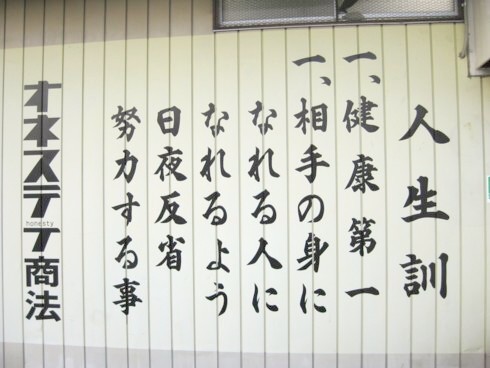 人生訓
一、健康第一
一、相手の身に
なれる人に
なれるよう
日夜反省
努力する事
オネスティ商法
honesty